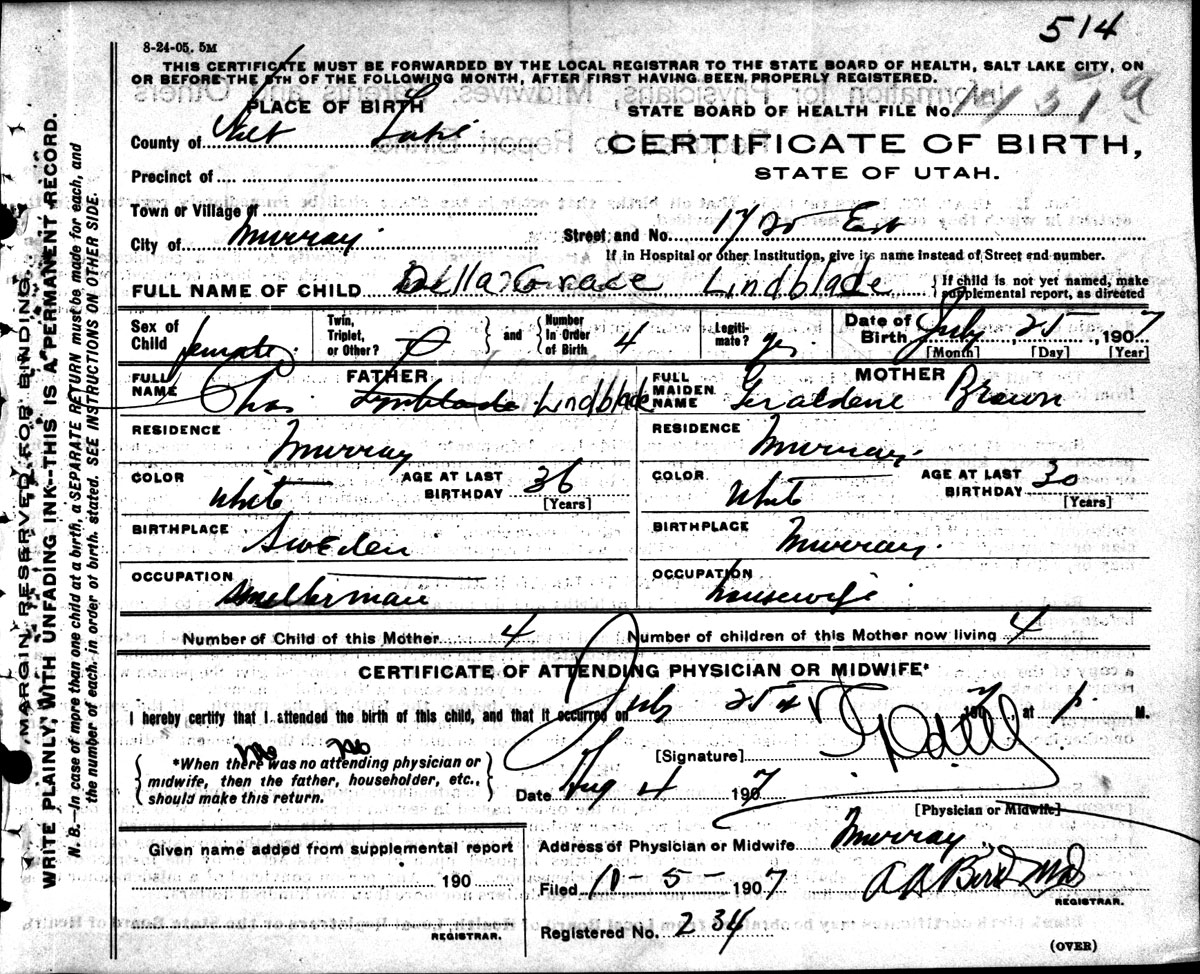 514
8-24-05. 5M
THIS CERTIFICATE MUST BE FORWARDED BY THE LOCAL REGISTRAR TO THE STATE BOARD OF HEALTH, SALT LAKE CITY, ON
OR BEFORE THE 5TH OF THE FOLLOWING MONTH, AFTER FIRST HAVING BEEN PROPERLY REGISTERED.
PLACE OF BIRTH
STATE BOARD OF HEALTH FILE No.
County of Salt Lake
CERTIFICATE OF BIRTH,
STATE OF UTAH.
Precinct of
Town or Village of
City of Murray
Street and No. 1725 East
If in Hospital or other Institution, give its name instead of Street and number.
FULL NAME OF CHILD Della Lindblade
If child is not yet named, make supplemental report, as directed
Sex of Child female
Twin, Triplet, or Other? 0 and Number In Order of Birth 4
Legitimate? yes
Date of Birth July 25, 1907
[Month] [Day] [Year]
FATHER
FULL NAME Chas. Lindblade
MOTHER
FULL MAIDEN NAME Geraldene Brown
RESIDENCE Murray
RESIDENCE Murray.
COLOR White AGE AT LAST BIRTHDAY 36 [Years]
COLOR White AGE AT LAST BIRTHDAY 30 [Years]
BIRTHPLACE Sweden
BIRTHPLACE Murray.
OCCUPATION Smelterman
OCCUPATION housewife
Number of Child of this Mother 4 Number of children of this Mother now living 4
CERTIFICATE OF ATTENDING PHYSICIAN OR MIDWIFE*
I hereby certify that I attended the birth of this child, and that it occurred on July 25 1907, at p. M.
*When there was no attending physician or
midwife, then the father, householder, etc.,
should make this return.
[Signature]
Date Aug 4 1907
[Physician or Midwife]
Given name added from supplemental report
190
REGISTRAR.
Address of Physician or Midwife Murray
Filed 10-5-1907 REGISTRAR.
Registered No. 234
(OVER)
MARGIN RESERVED FOR BINDING.
WRITE PLAINLY, WITH UNFADING INK--THIS IS A PERMANENT RECORD.
N. B.—In case of more than one child at a birth, a SEPARATE RETURN must be made for each, and
the number of each, in order of birth, stated. SEE INSTRUCTIONS ON OTHER SIDE.